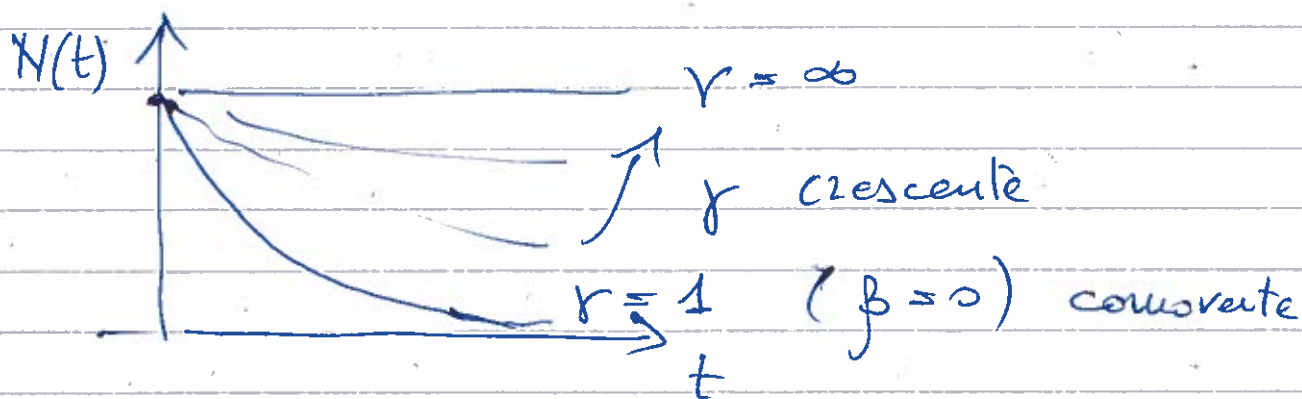 N(t)
γ = ∞
γ crescente
γ = 1 (β = 0) comovente
t